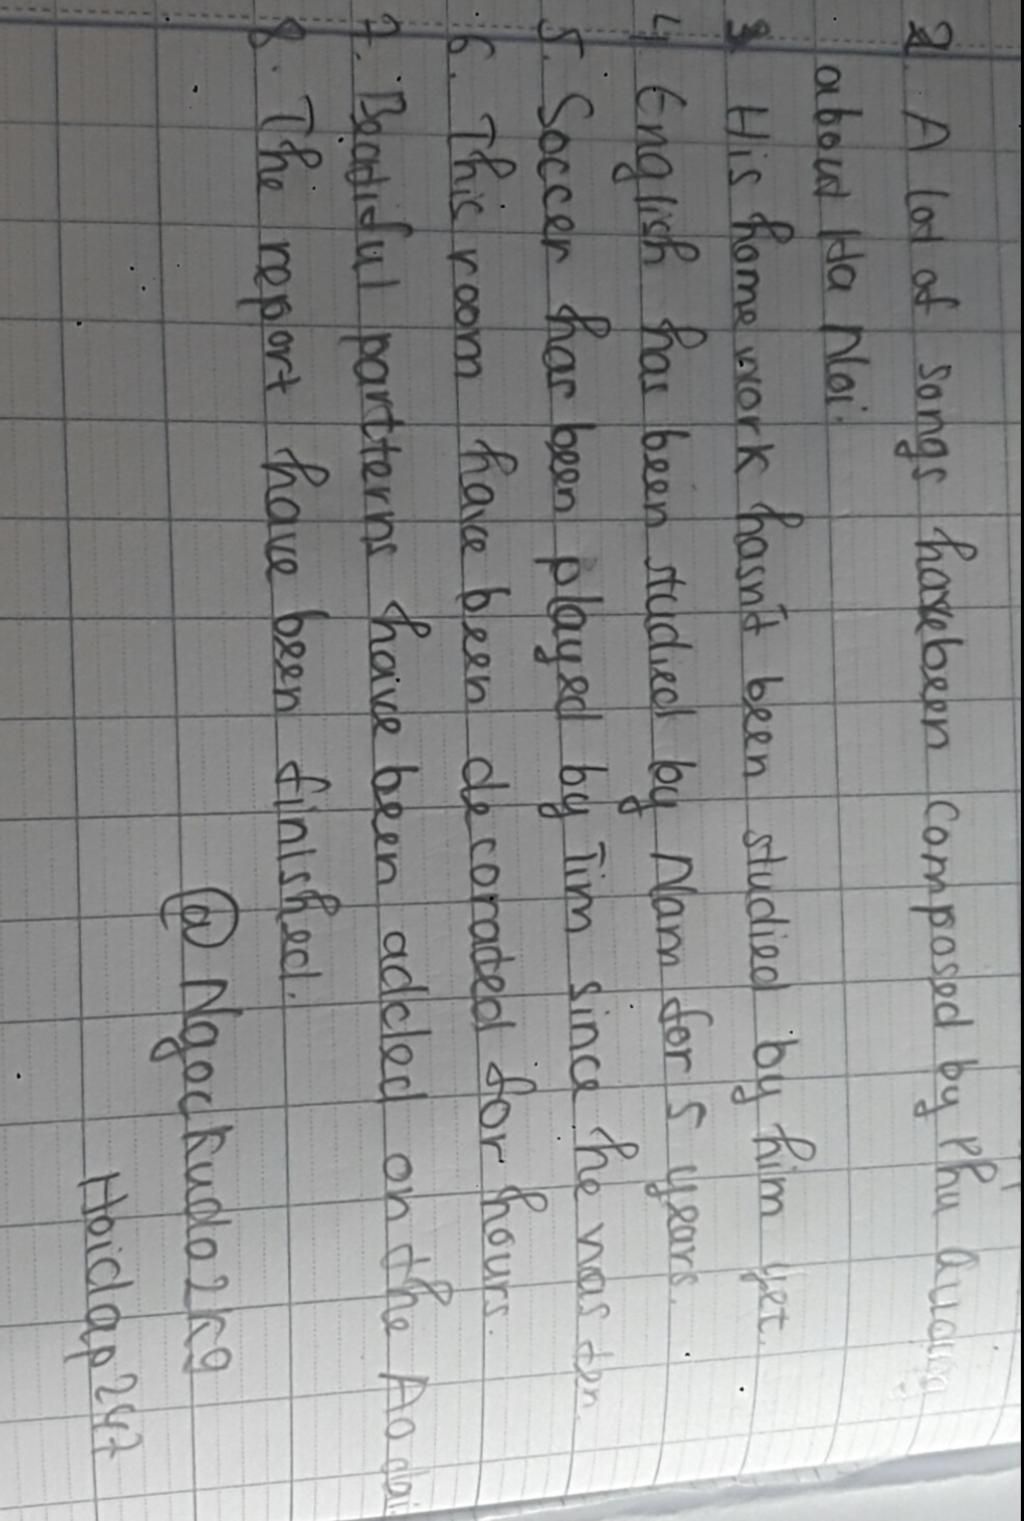 2. A lot of songs have been composed by Phu Quang
about Ha Noi.
3 His home work hasn't been studied by him yet.
4 English has been studied by Nam for 5 years.
5. Soccer has been played by Tim since he was ten
6. This room have been decoraded for hours.
7. Beatiful partterns have been added on the Ao dai
8. The report have been finished.
@Ngockudo2k9
Hoidap247